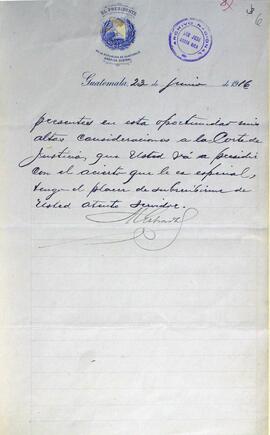 EL PRESIDENTE
DE LA REPUBLICA DE GUATEMALA
AMERICA CENTRAL
ARCHIVO NACIONAL
SAN JOSE
COSTA RICA
6
Guatemala, 23 de junio de 1916
presentes en esta oportunidad mis
altas consideraciones a la Corte de
Justicia, que Usted vá a presidir
con el acierto que le es especial,
tengo el placer de subscribirme de
Usted atento servidor.